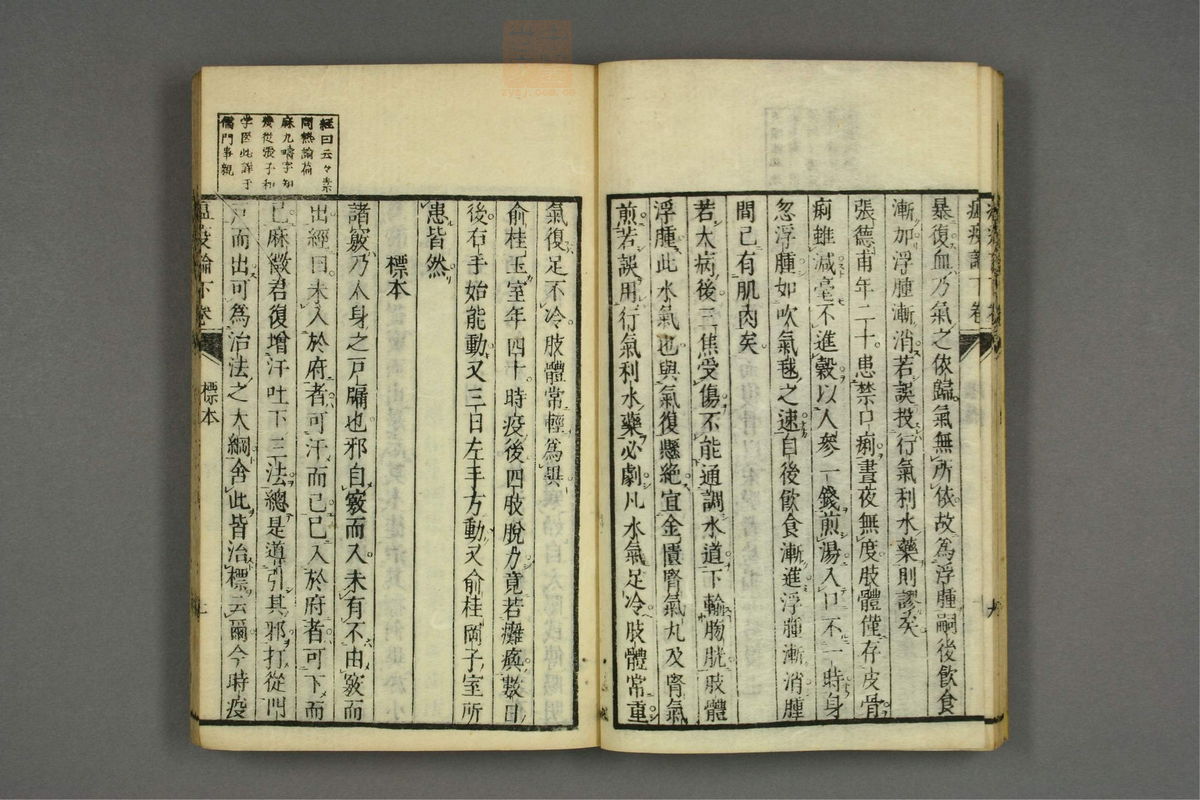 暴復血乃氣之依歸氣無所依故為浮腫嗣後飲食
漸加浮腫漸消若誤投行氣利水藥則謬矣
張德甫年二十患禁口痢晝夜無度肢體僅存皮骨
痢雖減毫不進穀以人參一錢煎湯入口不一時身
忽浮腫如吹氣毬之速自後飲食漸進浮腫漸消腫
間已有肌肉矣
若大病後三焦受傷不能通調水道下輸膀胱肢體
浮腫此水氣也與氣復懸絕宜金匱腎氣丸及腎氣
煎若誤用行氣利水藥必劇凡水氣足冷肢體常重
氣復足不冷肢體常輕為異
俞桂玉室年四十時疫後四肢脫力竟若癱瘓數日
後右手始能動又三日左手方動又俞桂岡子室所
患皆然
標本
諸竅乃人身之戶牖也邪自竅而入未有不由竅而
出經曰未入於府者可汗而已已入於府者可下而
已麻徵君復增汗吐下三法總是導引其邪打從門
戶而出可為治法之大綱舍此皆治標云爾今時疫
經曰云々素
問熱論篇
麻九疇字知
幾從張子和
学医此詳于
儒門事親
溫疫論下卷
標本